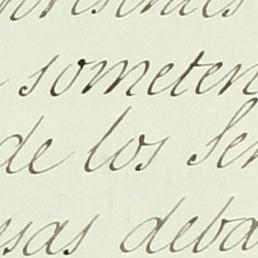 someten
de los Señ
esas deba